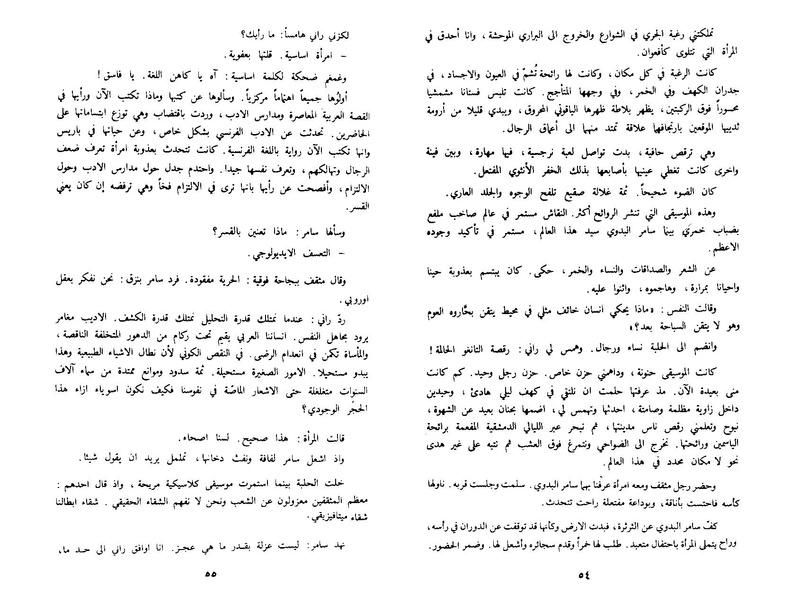 تملكتني رغبة الجري في الشوارع والخروج الى البراري الموحشة ، وانا أحدق في
المرأة التي تتلوى كأفعوان.
كانت الرغبة في كل مكان ، وكانت لها رائحة تُشمّ في العيون والاجساد ، في
جدران الكهف وفي الخمر ، وفي وجهها المتأجج. كانت تلبس فستانا مشمشيا
محسوراً فوق الركبتين ، يظهر بلاطة ظهرها الياقوتي المحروق ، ويبدي قليلا من أرومة
ثدييها الموقعين بارتجافها علاقة تمتد منهما الى أعماق الرجال.
وهي ترقص حافية ، بدت تواصل لعبة نرجسية ، فيها مهارة ، وبين فينة
واخرى كانت تغطي عينيها بأصابعها بذلك الخفر الأنثوي المفتعل.
كان الضوء شحيحاً. ثمة غلالة صقيع تلفح الوجوه والجلد العاري.
وهذه الموسيقى التي تنشر الروائح أكثر. النقاش مستمر في عالم صاخب ملفع
بضباب خمري بينما سامر البدوي سيد هذا العالم ، مستمر في تأكيد وجوده
الاعظم.
عن الشعر والصداقات والنساء والخمر ، حكى. كان يبتسم بعذوبة حينا
واحيانا بمرارة ، وهاجموه ، واثنوا عليه.
وقالت النفس : «ماذا يحكي انسان خائف مثلي في محيط يتقن بحّاروه العوم
وهو لا يتقن السباحة بعد؟»
وانضم الى الحلبة نساء ورجال. وهمس لي راني : رقصة التانغو الحالمة!
كانت الموسيقى حنونة ، وداهمني حزن خاص. حزن رجل وحيد. كم كانت
منى بعيدة الآن. مذ عرفتها حلمت ان نلتقي في كهف ليلي هادئ ، وحيدين
داخل زاوية مظلمة وصامتة ، احدثها وتهمس لي ، اضمها بحنان بعيد عن الشهوة ،
نبوح وتعلمني رقص ناس مدينتها ، ثم نبحر عبر الليالي الدمشقية المفعمة برائحة
الياسمين ورائحتها. نخرج الى الضواحي ونتمرغ فوق العشب ثم نتيه على غير هدى
نحو لا مكان محدد في هذا العالم.
وحضر رجل مثقف ومعه امرأة عرفنا بهما سامر البدوي. سلمت وجلست قربه. ناولها
كأسه فاحتست بأناقة ، وبوداعة مفتعلة راحت تتحدث.
كفّ سامر البدوي عن الثرثرة ، فبدت الارض وكأنها قد توقفت عن الدوران في رأسه ،
وراح يتملى المرأة باحتفال متعبد. طلب لها خمراً وقدم سجائره وأشعل لها. وضمر الحضور.
٥٤
لكزني راني هامساً : ما رأيك؟
– امرأة اساسية. قلتها بعفوية.
وغمغم ضحكة لكلمة اساسية : آه يا كاهن اللغة. يا فاسق!
أولوْها جميعاً اهتماماً مركزياً. وسألوها عن كتبها وماذا تكتب الآن ورأيها في
القصة العربية المعاصرة ومدارس الادب ، وردت باقتضاب وهي توزع ابتساماتها على
الحاضرين. تحدثت عن الادب الفرنسي بشكل خاص ، وعن حياتها في باريس
وانها تكتب الآن رواية باللغة الفرنسية. كانت تتحدث بعذوبة امرأة تعرف ضعف
الرجال وتهالكهم ، وتعرف نفسها جيدا. واحتدم جدل حول مدارس الادب وحول
الالتزام ، وأفصحت عن رأيها بانها ترى في الالتزام فخاً وهي ترفضه إن كان يعني
القسر.
وسألها سامر : ماذا تعنين بالقسر؟
– التعسف الايديولوجي.
وقال مثقف ببجاحة فوقية : الحرية مفقودة. فرد سامر بنزق : نحن نفكر بعقل
اوروبي.
ردّ راني : عندما نمتلك قدرة التحليل نمتلك قدرة الكشف. الاديب مغامر
يرود بمجاهل النفس. انساننا العربي يقيم تحت ركام من الدهور المتخلفة الناقصة ،
والمأساة تكمن في انعدام الرضى. في النقص الكوني لأن نطال الاشياء الطبيعية وهذا
يبدو مستحيلا. الامور الصغيرة مستحيلة. ثمة سدود وموانع ممتدة من سماء آلاف
السنوات متغلغلة حتى الاشعار الماضة في نفوسنا فكيف نكون اسوياء ازاء هذا
الحجْر الوجودي؟
قالت المرأة : هذا صحيح. لسنا اصحاء.
واذ اشعل سامر لفافة ونفث دخانها ، تململ يريد ان يقول شيئا.
خلت الحلبة بينما استمرت موسيقى كلاسيكية مريحة ، واذ قال احدهم :
معظم المثقفين معزولون عن الشعب ونحن لا نفهم الشقاء الحقيقي. شقاء ابطالنا
شقاء ميتافيزيقي.
نهد سامر : ليست عزلة بقدر ما هي عجز. انا اوافق راني الى حد ما ،
٥٥